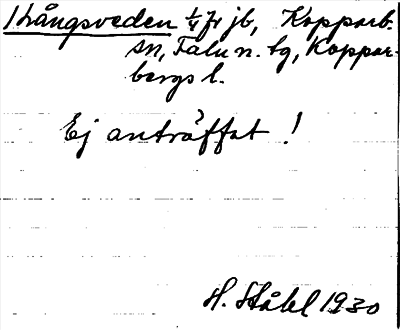 1 Långsveden ¼ fr jb, Kopparb.
sn, Falu n. tg, Koppar-
bergs l.
Ej anträffat!
H. Ståhl 1930